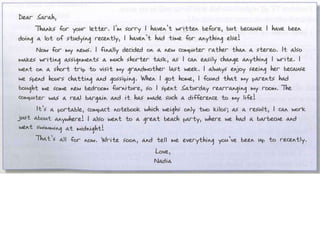 Dear Sarah,
Thanks for your letter. I'm sorry I haven't written before, but because I have been
doing a lot of studying recently, I haven't had time for anything else!
Now for my news. I finally decided on a new computer rather than a stereo. It also
makes writing assignments a much shorter task, as I can easily change anything I write. I
went on a short trip to visit my grandmother last week. I always enjoy seeing her because
we spend hours chatting and gossiping. When I got home, I found that my parents had
bought me some new bedroom furniture, so I spent Saturday rearranging my room. The
computer was a real bargain and it has made such a difference to my life!
It's a portable, compact notebook which weighs only two kilos; as a result, I can work
just about anywhere! I also went to a great beach party, where we had a barbecue and
went swimming at midnight!
That's all for now. Write soon, and tell me everything you've been up to recently.
Love,
Nadia